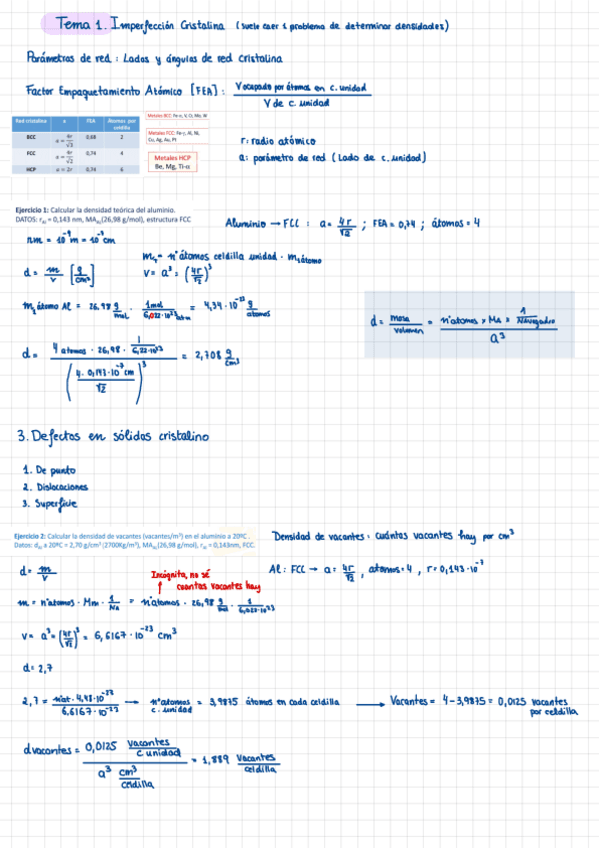 Tema 1. Imperfección Cristalina (suele caer 1 problema de determinar densidades)
Parámetros de red : Lados y ángulos de red cristalina
Factor Empaquetamiento Atómico [FEA] : V ocupado por átomos en c. unidad / V de c. unidad
Red cristalina a FEA Átomos por celdilla
BCC a = 4r/√3 0,68 2
FCC a = 4r/√2 0,74 4
HCP a = 2r 0,74 6
Metales BCC: Fe-α, V, Cr, Mo, W
Metales FCC: Fe-γ, Al, Ni, Cu, Ag, Au, Pt
Metales HCP
Be, Mg, Ti-α
r: radio atómico
a: parámetro de red (Lado de c. unidad)
Ejercicio 1: Calcular la densidad teórica del aluminio.
DATOS: rAl = 0,143 nm, MAAl(26,98 g/mol), estructura FCC
Aluminio → FCC : a = 4r/√2 ; FEA = 0,74 ; átomos = 4
nm = 10⁻⁹ m = 10⁻⁷ cm
d = m/v [g/cm³]
m = nº átomos celdilla unidad · m₁átomo
V = a³ = (4r/√2)³
m₁ átomo Al = 26,98 g/mol · 1mol / 6,022·10²³ atm = 4,34·10⁻²³ g/átomos
d = masa/volumen = nº átomos × MA × 1/Navogadro / a³
d = 4 átomos · 26,98 · 1/6,22·10²³ / (4·0,143·10⁻⁷ cm / √2)³ = 2,708 g/cm³
3. Defectos en sólidos cristalino
1. De punto
2. Dislocaciones
3. Superficie
Ejercicio 2: Calcular la densidad de vacantes (vacantes/m³) en el aluminio a 20ºC .
Datos: dAl a 20ºC = 2,70 g/cm³ (2700Kg/m³), MAAl(26,98 g/mol), rAl = 0,143nm, FCC.
Densidad de vacantes: cuántas vacantes hay por cm³
d = m/v
Incógnita, no sé cuantas vacantes hay
Al : FCC → a = 4r/√2 , átomos = 4 , r = 0,143·10⁻⁷
m = nº átomos · Mm · 1/NA = nº átomos · 26,98 g/mol · 1/6,022·10²³
v = a³ = (4r/√2)³ = 6,6167·10⁻²³ cm³
d = 2,7
2,7 = nº at · 4,48·10⁻²³ / 6,6167·10⁻²³ → nº átomos / c. unidad = 3,9875 átomos en cada celdilla → Vacantes = 4 - 3,9875 = 0,0125 vacantes por celdilla
d vacantes = 0,0125 vacantes/c. unidad / a³ cm³/celdilla = 1,889 vacantes/celdilla